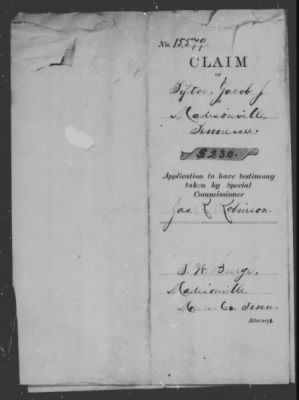 No. 15,540
11
CLAIM
OF
Tipton, Jacob J
Madisonville
Tennessee.
$230.
Application to have testimony
taken by Special
Commissioner
Jas. R. Robinson.
J. W.
Madisonville
Co. Tenn.
Attorney.